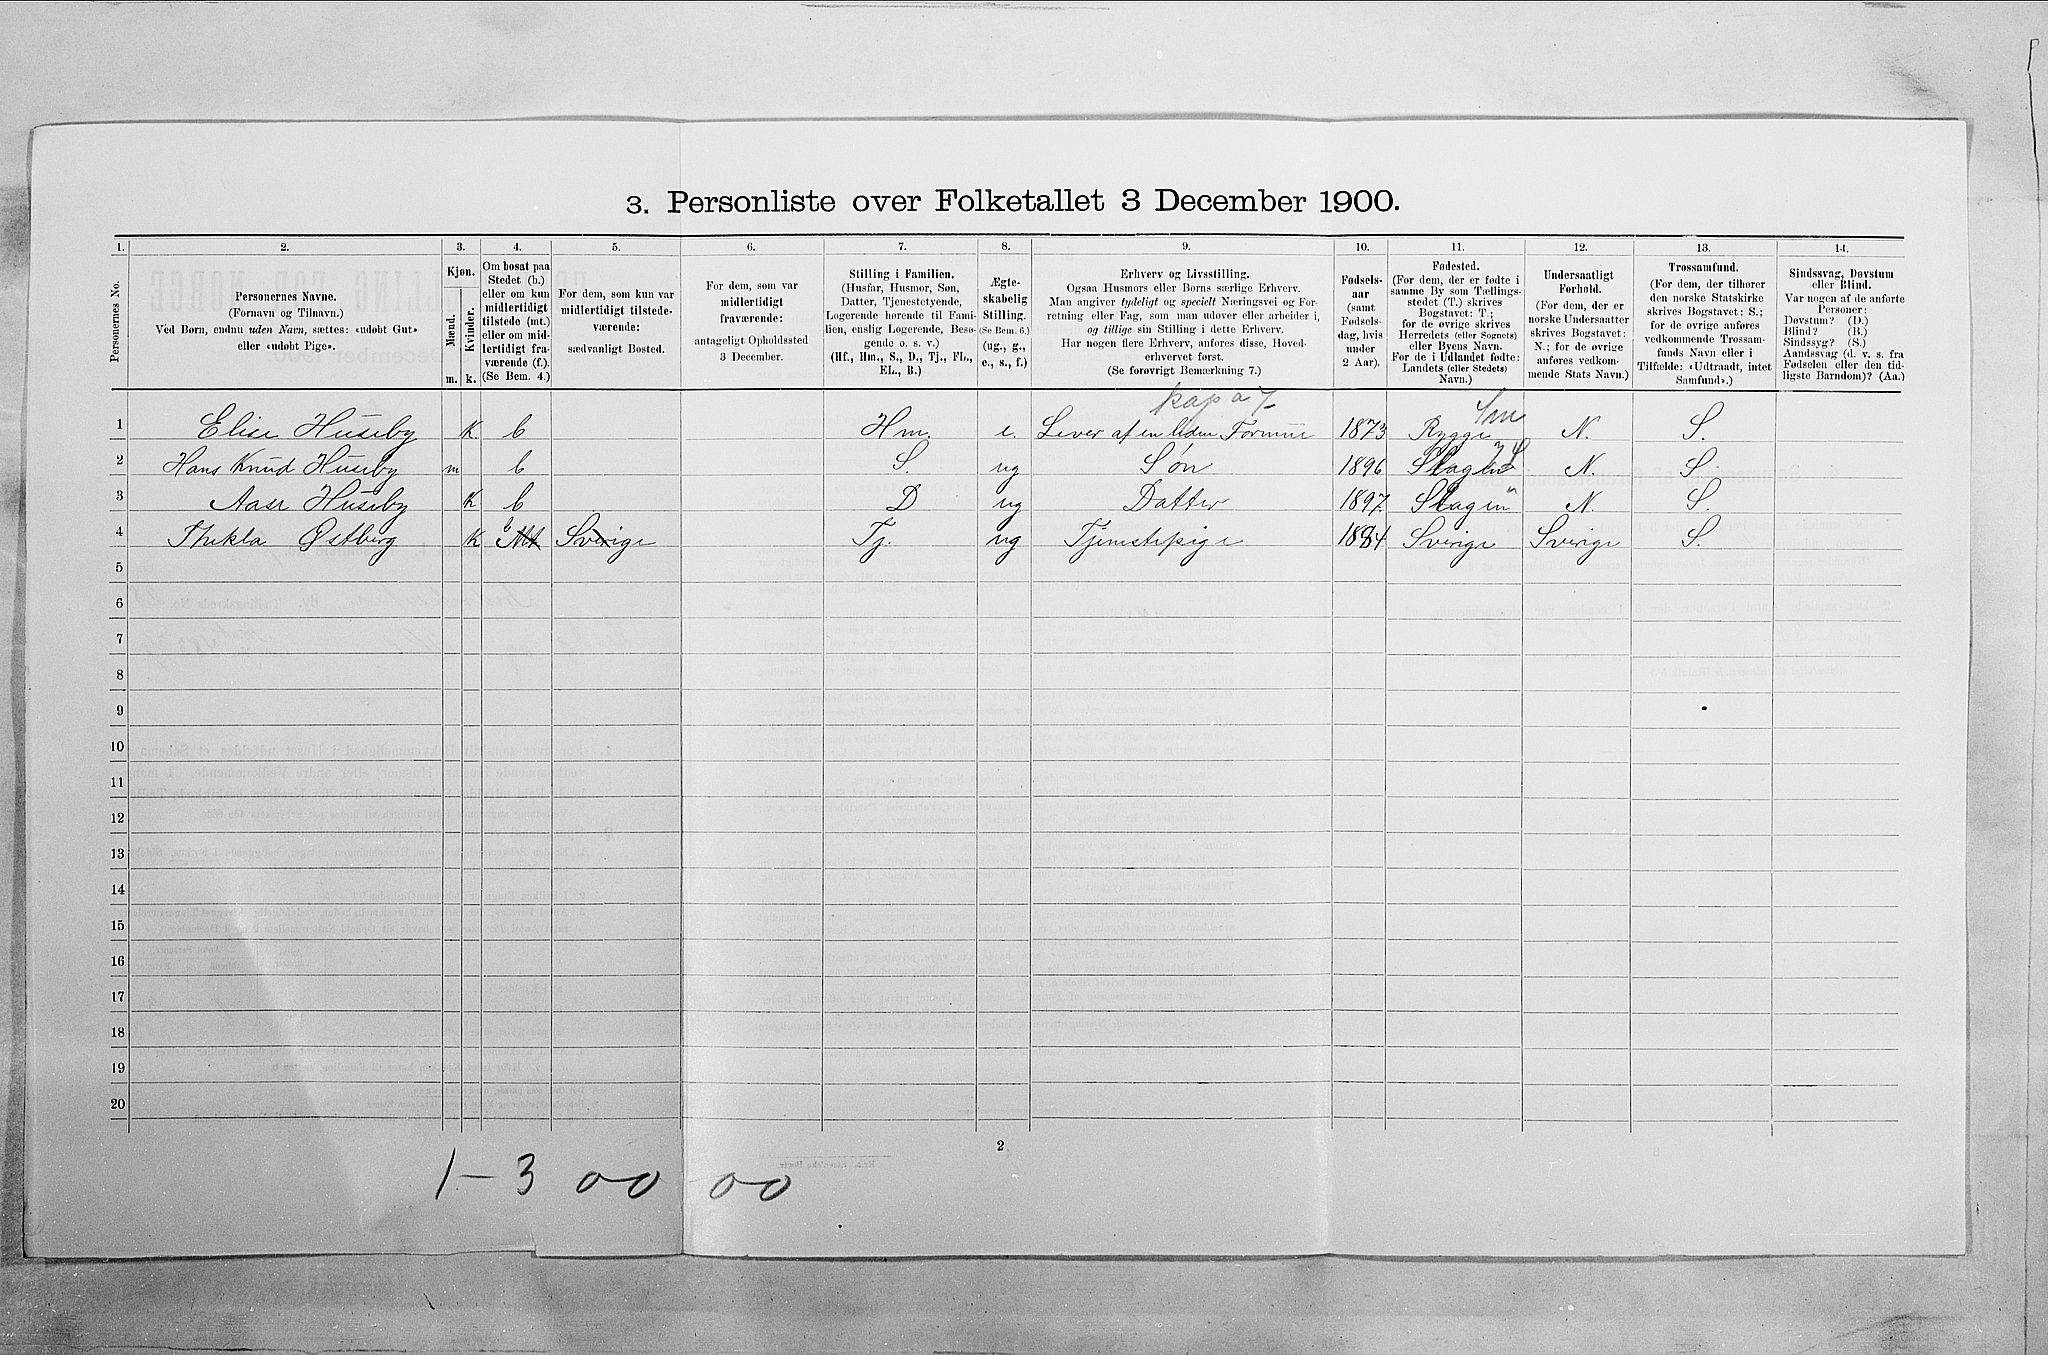 3. Personliste over Folketallet 3 December 1900.
1. 2. 3. 4. 5. 6. 7. 8. 9. 10. 11. 12. 13. 14.
Personernes No.
Personernes Navne.
(Fornavn og Tilnavn.)
Ved Børn, endnu uden Navn, sættes: «udøbt Gut»
eller «udøbt Pige».
Kjøn.
Mænd.
Kvinder.
m. k.
Om bosat paa
Stedet (b.)
eller om kun
midlertidigt
tilstede (mt.)
eller om mid-
lertidigt fra-
værende (f.).
(Se Bem. 4.)
For dem, som kun var
midlertidigt tilstede-
værende:
sædvanligt Bosted.
For dem, som var
midlertidigt
fraværende:
antageligt Opholdssted
3 December.
Stilling i Familien.
(Husfar, Husmor, Søn,
Datter, Tjenestetyende,
Logerende hørende til Fami-
lien, enslig Logerende, Besø-
gende o. s. v.)
(Hf., Hm., S., D., Tj., FL.,
EL., B.)
Ægte-
skabelig
Stilling.
(Se Bem. 6.)
(ug., g.,
e., s., f.)
Erhverv og Livsstilling.
Ogsaa Husmors eller Børns særlige Erhverv.
Man angiver tydeligt og specielt Næringsvei og For-
retning eller Fag, som man udøver eller arbeider i,
og tillige sin Stilling i dette Erhverv.
Har nogen flere Erhverv, anføres disse, Hoved-
erhvervet først.
(Se forøvrigt Bemærkning 7.)
Fødsels-
aar
(samt
Fødsels-
dag, hvis
under
2 Aar).
Fødested.
(For dem, der er fødte i
samme By som Tællings-
stedet (T.) skrives
Bogstavet: T.;
for de øvrige skrives
Herredets (eller Sognets)
eller Byens Navn.
For de i Udlandet fødte:
Landets (eller Stedets)
Navn.)
Undersaatligt
Forhold.
(For dem, der er
norske Undersaatter
skrives Bogstavet:
N.; for de øvrige
anføres vedkom-
mende Stats Navn.)
Trossamfund.
(For dem, der tilhører
den norske Statskirke
skrives Bogstavet: S.;
for de øvrige anføres
vedkommende Trossam-
funds Navn eller i
Tilfælde: «Udtraadt, intet
Samfund».)
Sindssvag, Døvstum
eller Blind.
Var nogen af de anførte
Personer:
Døvstum? (D.)
Blind? (B.)
Sindssyg? (S.)
Aandssvag (d. v. s. fra
Fødselen eller den tid-
ligste Barndom)? (Aa.)
1 Elise Huseby K. b Hm. e. Lever af en liden Formue 1873 Rygge N. S.
2 Hans Knud Huseby m b S. ug Søn 1896 Slagen N. S
3 Aase Huseby K b D ug Datter 1897. Slagen N. S.
4 Thekla Østberg K b Mt Sverige Tj. ug Tjenestepige 1884 Sverige Sverige S.
5
6
7
8
9
10
11
12
13
14
15
16
17
18
19
20
2
1-3 00 00